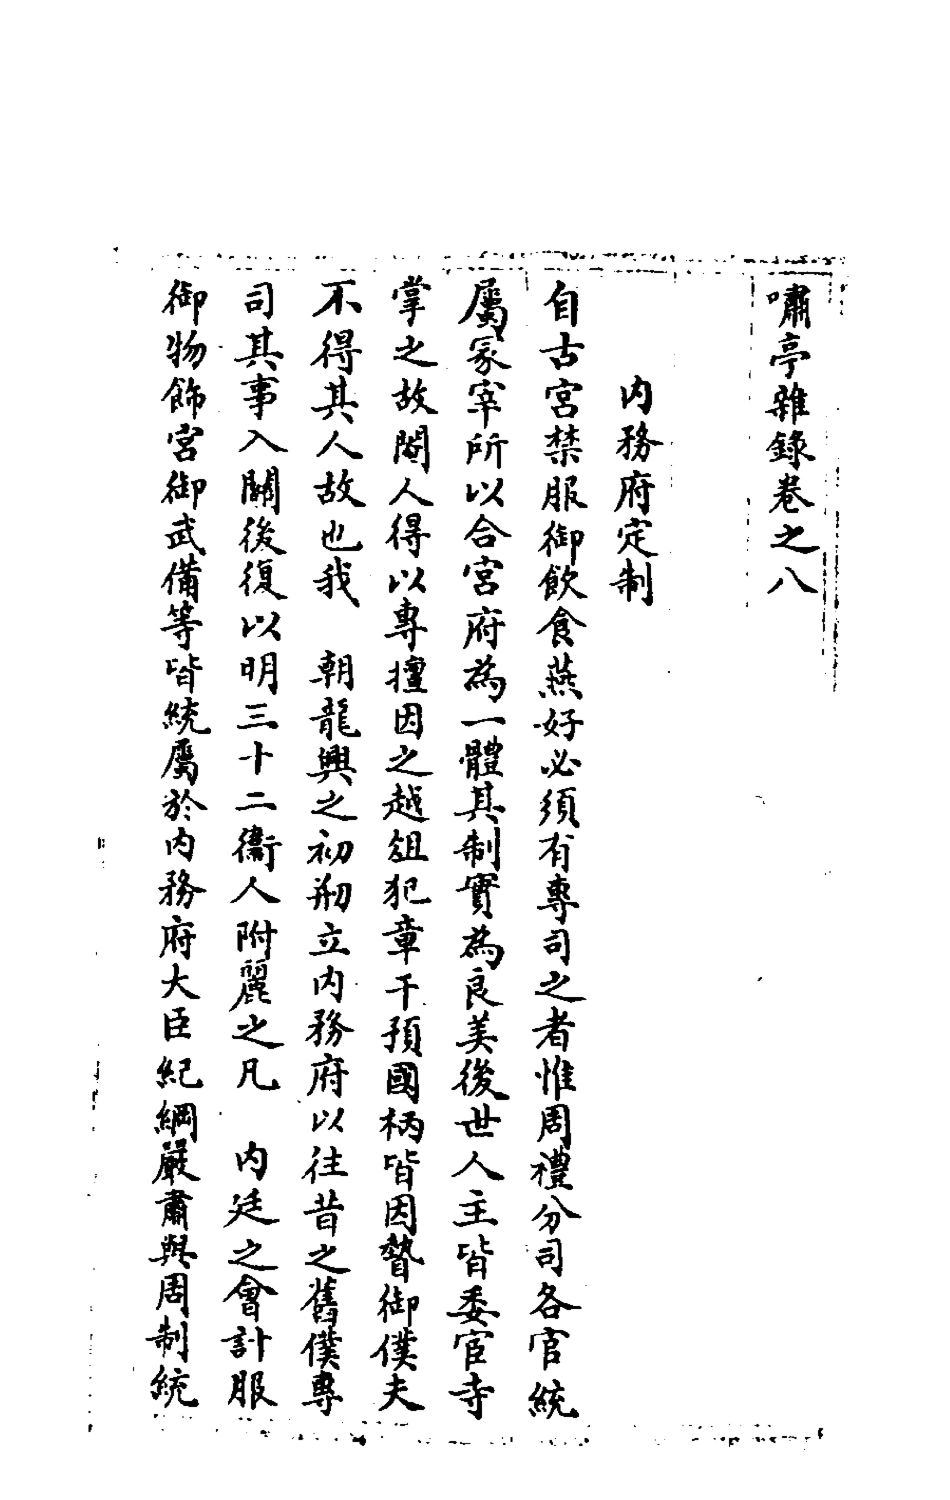 嘯亭雜錄卷之八
内務府定制
自古宮禁服御飲食燕好必須有專司之者惟周禮分司各官統
屬冢宰所以合宮府為一體其制實為良美後世人主皆委宦寺
掌之故閹人得以專擅因之越俎犯章干預國柄皆因暬御僕夫
不得其人故也我 朝龍興之初剏立内務府以往昔之舊僕專
司其事入關後復以明三十二衛人附麗之凡 内廷之會計服
御物飾宮御武備等皆統屬於内務府大臣紀綱嚴肅與周制統